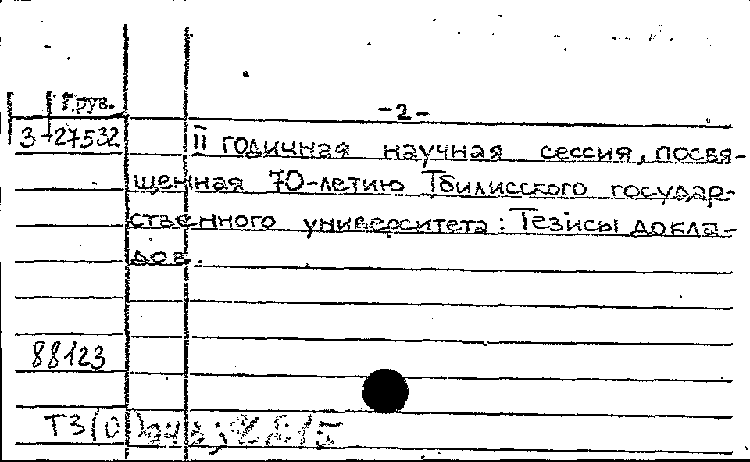 Груз.
- 2 -
3-27532 II годичная научная сессия, посвя-
щенная 70-летию Тбилисского государ-
ственного университета: Тезисы докла-
дов.
88123
ТЗ(0)